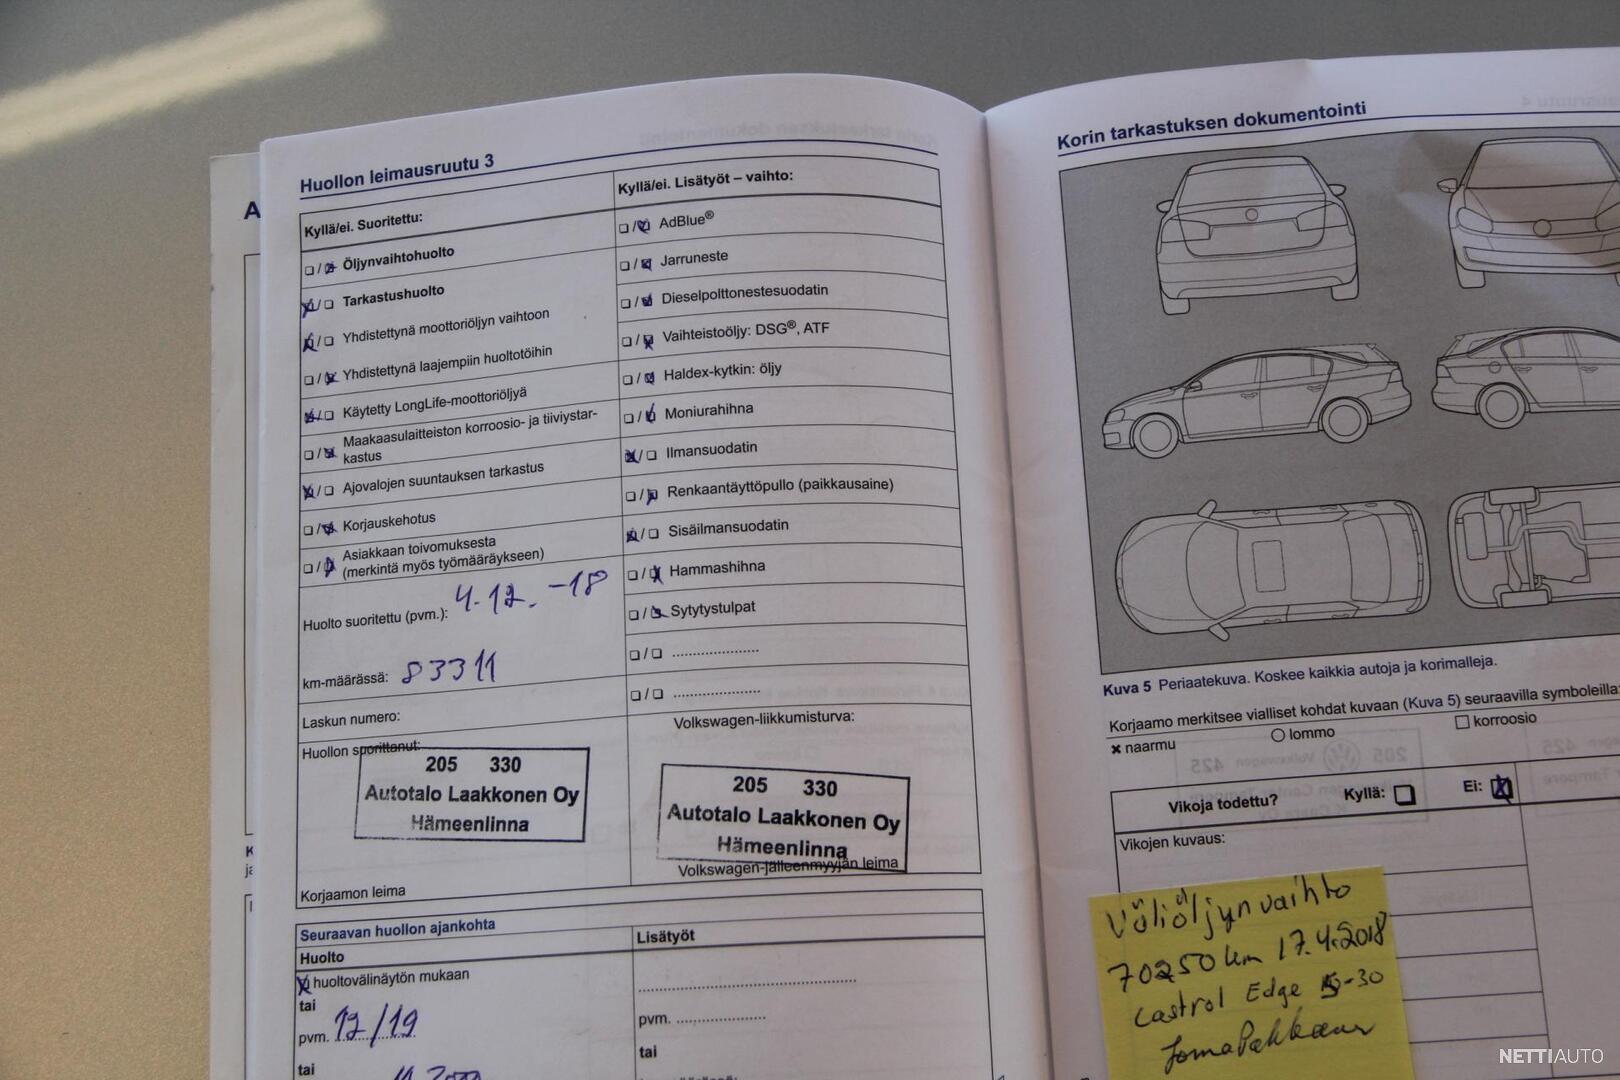 Huollon leimausruutu 3
Kyllä/ei. Suoritettu:
Öljynvaihtohuolto
Tarkastushuolto
Yhdistettynä moottoriöljyn vaihtoon
Yhdistettynä laajempiin huoltotöihin
Käytetty LongLife-moottoriöljyä
Maakaasulaitteiston korroosio- ja tiiviystar-
kastus
Ajovalojen suuntauksen tarkastus
Korjauskehotus
Asiakkaan toivomuksesta
(merkintä myös työmääräykseen)
Huolto suoritettu (pvm.): 4.12.-18
km-määrässä: 83311
Laskun numero:
Huollon suorittanut:
205 330
Autotalo Laakkonen Oy
Hämeenlinna
Korjaamon leima
Kyllä/ei. Lisätyöt – vaihto:
AdBlue®
Jarruneste
Dieselpolttonestesuodatin
Vaihteistoöljy: DSG®, ATF
Haldex-kytkin: öljy
Moniurahihna
Ilmansuodatin
Renkaantäyttöpullo (paikkausaine)
Sisäilmansuodatin
Hammashihna
Sytytystulpat
Volkswagen-liikkumisturva:
205 330
Autotalo Laakkonen Oy
Hämeenlinna
Volkswagen-jälleenmyyjän leima
Seuraavan huollon ajankohta
Huolto
huoltovälinäytön mukaan
tai
pvm. 12/19
tai
Lisätyöt
pvm.
tai
Korin tarkastuksen dokumentointi
Kuva 5 Periaatekuva. Koskee kaikkia autoja ja korimalleja.
Korjaamo merkitsee vialliset kohdat kuvaan (Kuva 5) seuraavilla symboleilla:
naarmu lommo korroosio
Vikoja todettu? Kyllä: Ei:
Vikojen kuvaus:
Väliöljynvaihto
70250 km 17.4.2018
Castrol Edge 5-30
NETTIAUTO